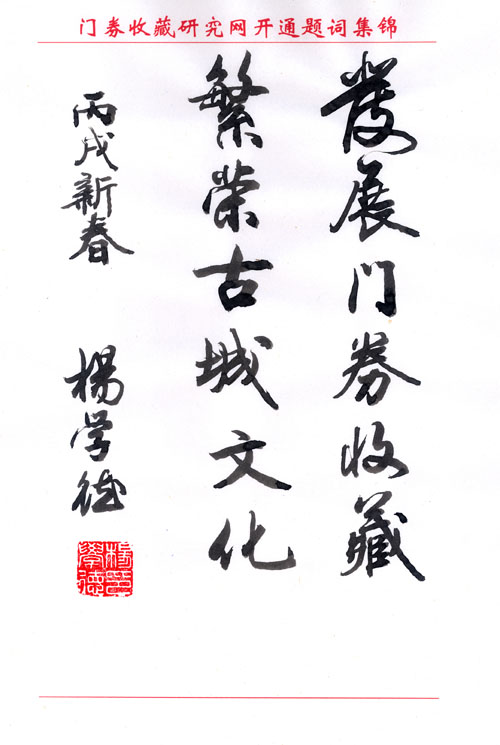 门券收藏研究网开通题词集锦
發展门券收藏
繁荣古城文化
丙戌新春
杨学德
楊印
學德